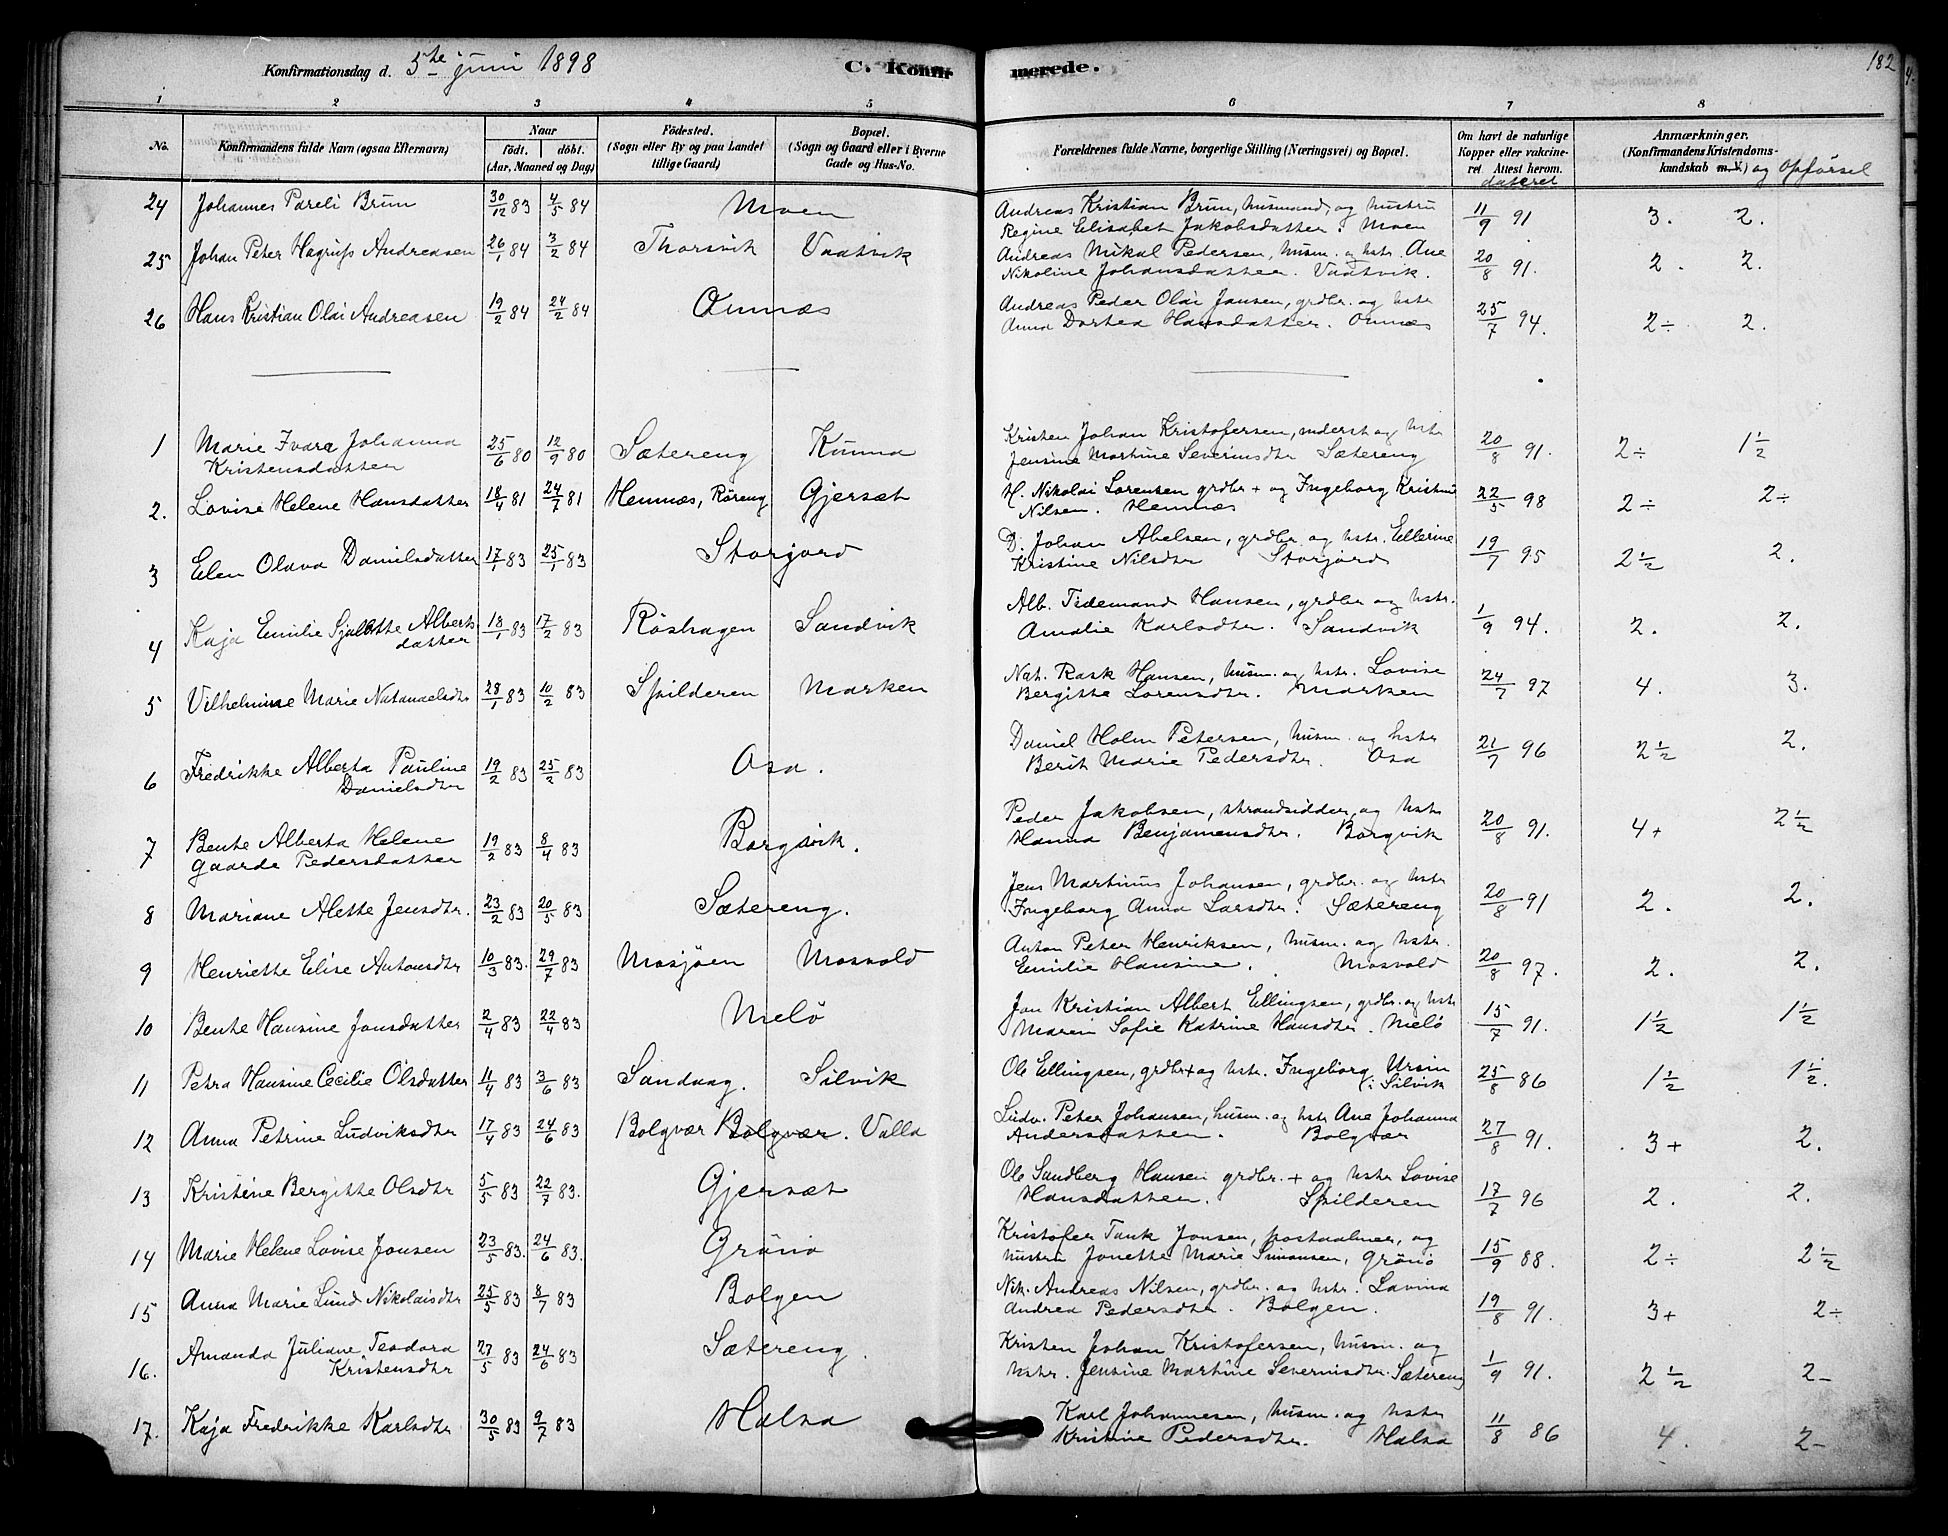 Konfirmationsdag d. 5te juni 1898 C. Konfir- merede. 182
1 2 3 4 5 6 7 8
No. Konfirmandens fulde Navn (ogsaa Efternavn) Naar födt. döbt. (Aar, Maaned og Dag) Födested. (Sogn eller By og paa Landet tillige Gaard) Bopæl. (Sogn og Gaard eller i Byerne Gade og Hus-No. Forældrenes fulde Navne, borgerlige Stilling (Næringsvei) og Bopæl. Om havt de naturlige Kopper eller vakcineret. Attest herom. dateret Anmærkninger. (Konfirmandens Kristendomskundskab m. V.) og Opførsel
24 Johannes Pareli Brun 30/12 83 4/5 84 Moen Andreas Kristian Brun, husmand, og hustru 11/9 91 3. 2.
Regine Elisabet Jakobsdatter. Moen
25 Johan Peter Hagrup Andreasen 26/1 84 3/2 84 Thorsvik Vaatvik Andreas Mikal Pedersen, husm. og hstr. Ane 20/8 91. 2. 2.
Nikoline Johansdatter. Vaatvik.
26 Hans Kristian Olai Andreasen 19/2 84 24/2 84 Önnæs Andreas Peder Olai Jansen, grdbr. og hstr 25/7 94. 2÷ 2.
Anna Dortea Hansdatter. Önnæs
1 Marie Ivara Johanna 25/6 80 12/9 80 Sætereng Kunna Kristen Johan Kristofersen, inderst og hstr 20/8 91. 2÷ 1½
Kristensdatter Jensine Martine Severinsdtr Sætereng
2. Lovise Helene Hansdatter 18/4 81 24/7 81 Hemnæs, Röreng Gjersæt H. Nikolai Lorensen grdbr + og Ingeborg Kristine 22/5 98 2÷ 2÷
Nilsen. Hemnæs
3 Elen Olava Danielsdatter 17/1 83 25/1 83 Storjord D. Johan Abelsen, grdbr og hstr. Ellerine 19/7 95 2½ 2.
Kristine Nilsdtr Storjord
4 Kaja Emilie Sjalotte Alberts 18/1 83 17/2 83 Röshagen Sandvik Alb. Tidemand Hansen, grdbr og hstr. 1/9 94. 2. 2.
datter Amalie Karlsdtr. Sandvik
5 Vilhelmine Marie Natanaelsdtr 28/1 83 10/2 83 Spilderen Marken Nat. Rask Hansen, husm. og hstr. Lovise 24/7 97 4. 3.
Bergitte Lorensdtr. Marken
6 Fredrikke Alberta Pauline 19/2 83 25/2 83 Osa. Daniel Holm Petersen, husm. og hstr 21/7 96 2½ 2.
Danielsdtr Berit Marie Pedersdtr. Osa
7 Bente Alberta Helene 19/2 83 8/4 83 Borgsvik. Peder Jakobsen, strandsidder, og hstr 20/8 91. 4+ 2½
Gaarde Pedersdatter Hanna Benjamensdtr. Borgvik
8 Mariane Alette Jensdtr. 23/2 83 20/5 83 Sætereng. Jens Martinus Johansen, grdbr. og hstr 20/8 91 2. 2.
Ingeborg Anna Larsdtr. Sætereng
9 Henriette Elise Antonsdtr 10/3 83. 29/7 83 Mosjöen Mosvold Anton Peter Henriksen, husm. og hstr. 20/8 97. 2. 2.
Emilie Hansine. Mosvold
10 Bente Hansine Jonsdatter 2/4 83 22/4 83 Melö Jon Kristian Albert Ellingsen, grdbr. og hstr 15/7 91. 1½ 1½
Maren Sofie Katrine Hansdtr. Melö
11 Petra Hansine Cecilie Olsdatter 11/4 83 3/6 83 Sandaag. Silvik Ole Ellingsen, grdbr + og hstr. Ingeborg Ursin 25/8 86 1½ 1½.
i Silvik
12 Anna Petrine Ludviksdtr 17/4 83 24/6 83 Bolgvær Bolgvær. Valla Ludv. Peter Johansen, husm. og hstr Ane Johanna 27/8 91. 3+ 2.
Andersdatter. Bolgvær
13 Kristine Bergitte Olsdtr 5/5 83 22/7 83. Gjersæt Ole Sandberg Hansen grdbr. + og hstr Lovise 17/7 96 2. 2.
Hansdatter. Spilderen
14 Marie Helene Lovise Jonsen 23/5 83. 24/6 83. Grönö Kristofer Tank Jonsen, postaabner, og 15/9 88. 2÷ 2½
hustru Jonette Marie Simonsen, Grönö
15 Anna Marie Lund Nikolaisdtr 25/5 83 8/7 83 Bolgen Nik. Andreas Nilsen, grdbr. og hstr. Lavina 19/8 91. 3+ 2÷
Andrea Pedersdtr. Bolgen.
16. Amanda Juliane Teodora 27/5 83 24/6 83 Sætereng. Kristen Johan Kristofersen, husm. og 1/9 91. 2½ 2-
Kristensdtr hstr. Jensine Martine Severinsdtr. Sætereng
17. Kaja Fredrikke Karlsdtr 30/5 83 9/7 83 Halsa Karl Johannesen, husm. og hstr 11/8 86 4. 2-
Kristine Pedersdtr. Halsa